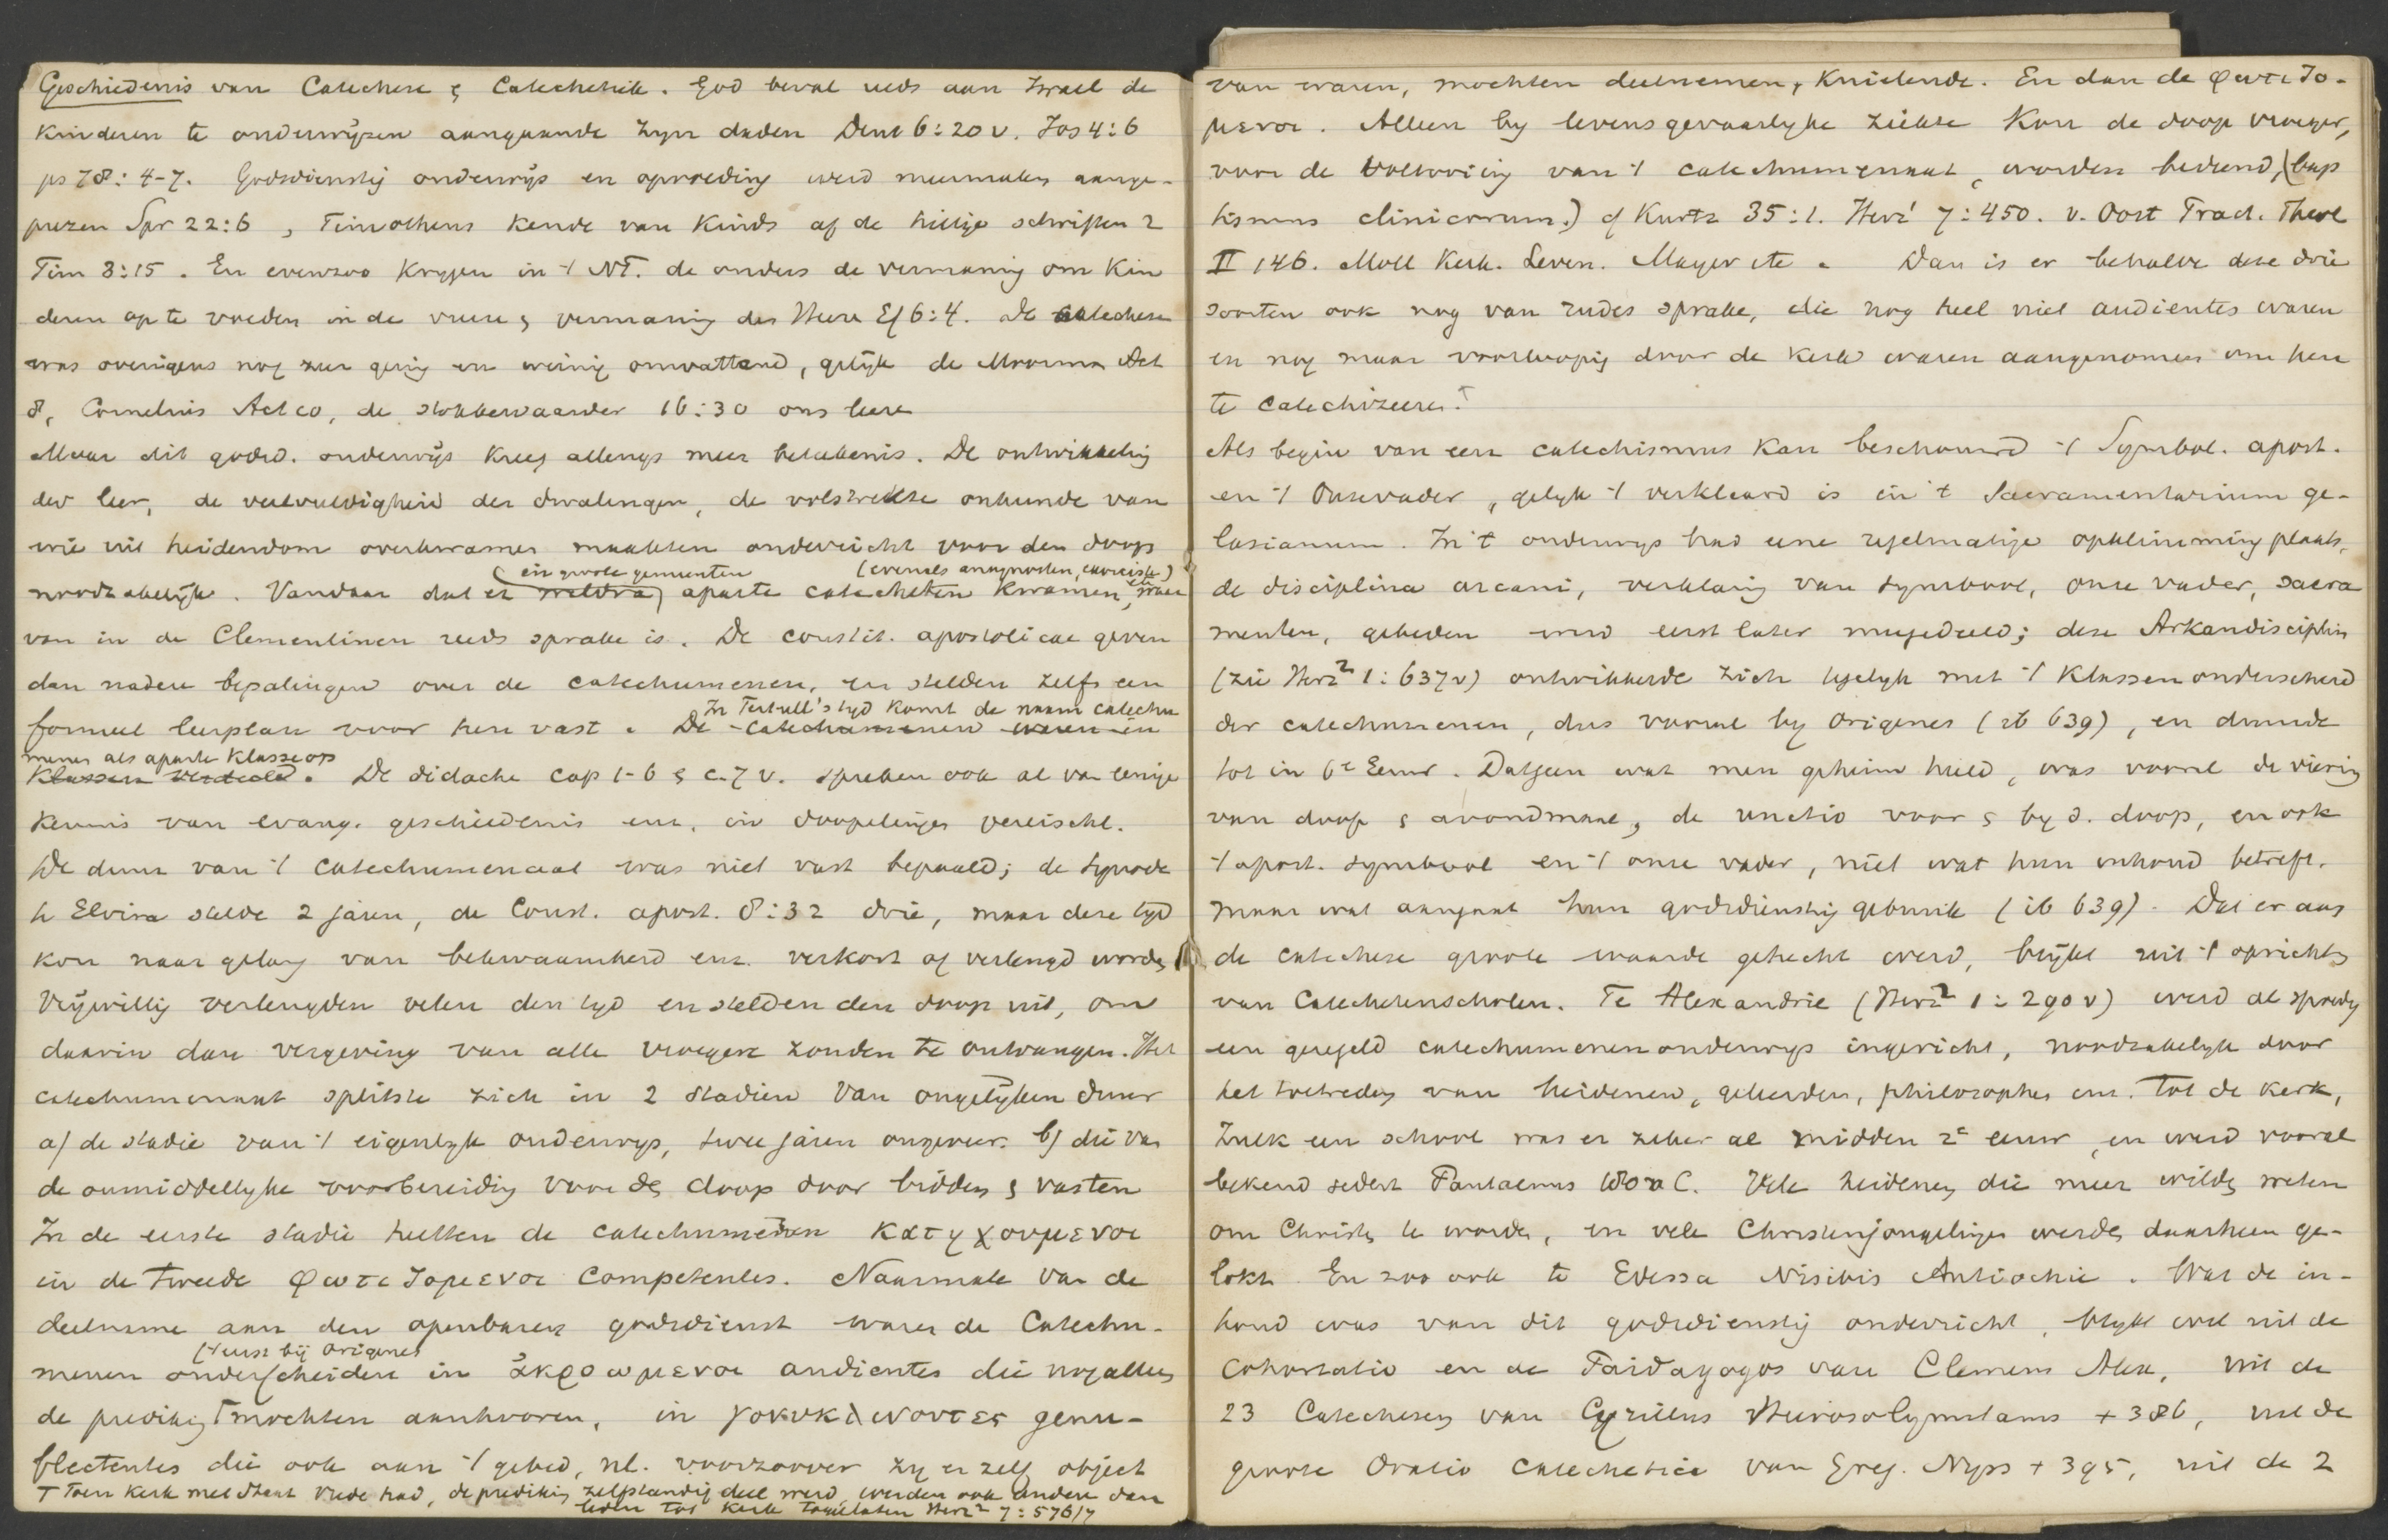 Geschiedenis van Catechese & Catechetiek. God beval reeds aan Israel de
Kinderen te onderwijzen aangaande zijn daden Deut 6:20 v. Jos 4:6
ps 78:4-7. Godsdienstig onderwijs en opvoeding werd meermalen aange-
prezen Spr 22:6, Timotheus kende van kinds af de heilige schriften 2
Tim 3:15. En evenzoo krijgen in 't NT. de ouders de vermaning om Kin
deren op te voeden in de vreeze & vermaning des Heeren Ef 6:4. De catechese
was overigens nog zeer gering en weinig omvattend, gelijk de Moorman Act
8, Cornelius Act 10, de stokbewaarder 16:30 ons leren
Maar dit godsd. onderwijs kreeg allengs meer beteekenis. De ontwikkeling
der leer, de veelvuldigheid der dwalingen, de volstrekte onkunde van
wie uit heidendom overkwamen maakten onderricht voor den doop
(in groote gemeenten (evenals anagnosten, exorcisten)
noodzakelijk. Vandaar dat er weldra) aparte catecheten kwamen, waar
van in de Clementinen reeds sprake is. De constit. apostolicae geven
dan nadere bepalingen over de catechumenen, en stelden zelfs een
In Tertull's tijd komt de naam catechu
formeel leerplan voor hen vast. De catechumenen waren in
menen als aparte klasse op
Klassen verdeeld. De didache cap 1-6 & c. 7 v. spreken ook al van eenige
kennis van evang. geschiedenis enz. in doopelingen vereischt.
De duur van 't catechumenaat was niet vast bepaald; de synode
te Elvira stelde 2 jaren, de Const. apost. 8:32 drie, maar deze tijd
kon naar gelang van bekwaamheid enz. verkort of verlengd worden
Vrijwillig verlengden velen den tijd en stelden den doop uit, om
daarin dan vergeving van alle vroegere zonden te ontvangen. Het
catechumenaat splitste zich in 2 stadien van ongelijken duur
a) de stadie van 't eigenlijk onderwijs, twee jaren ongeveer. b) die van
de onmiddellijke voorbereiding voor den doop door bidden & vasten
In de eerste stadie heetten de catechumenen κατηχουμενοι
in de tweede φωτιζομενοι competentes. Naarmate van de
deelname aan den openbaren godsdienst waren de Catechu-
('t eerst bij Origenes
menen onderscheiden in ἀκροωμενοι audientes die nog alleen
de prediking † mochten aanhooren, in γονυκλινοντες genu-
flectentes die ook aan 't gebed, nl. voorzoover zij er zelf object
† Toen kerk met staat vrede had, de prediking zelfstandig deel werd, werden ook andere dan
leden tot kerk toegelaten Herz² 7:576/7
van waren, mochten deelnemen, knielende. En dan de φωτιζο-
μενοι. Alleen bij levensgevaarlijke ziekte kon de doop vroeger,
voor de voltooiing van 't catechumenaat, worden bediend, (bap
tismus clinicorum.) cf Kurtz 35:1. Herz¹ 7:450. v. Oost. Pract. Theol
II 146. Moll Kerk. Leven. Mayer etc. Dan is er behalve deze drie
soorten ook nog van rudes sprake, die nog heel niet audientes waren
en nog maar voorloopig door de kerk waren aangenomen om hen
te catechizeeren.
Als begin van een catechismus kan beschouwd 't Symbol. apost.
en 't Onzevader, gelijk 't verklaard is in 't Sacramentarium ge-
lasianum. In 't onderwijs had eene regelmatige opklimming plaats,
de disciplina arcani, verklaring van symbool, onze vader, sacra
menten, gebeden werd eerst later meegedeeld; deze Arkandisciplin
(zie Herz² 1:637v) ontwikkelde zich tegelijk met 't Klassenonderscheid
der catechumenen, dus vooral bij Origenes (ib 639), en duurde
tot in 6e Eeuw. Datgeen wat men geheim hield, was vooral de viering
van doop & avondmaal, de unctio voor & bij d. doop, en ook
't apost. symbool en 't onze vader, niet wat hun inhoud betreft,
maar wat aangaat hun godsdienstig gebruik (ib 639). Dat er aan
de catechese groote waarde gehecht werd, blijkt uit 't oprichten
van Catechetenscholen. Te Alexandrie (Herz² 1:290 v) werd al spoedig
een geregeld catechumenenonderwijs ingericht, noodzakelijk door
het toetreden van heidenen, geleerden, philosophen enz. tot de kerk,
Zulk een school was er zeker al midden 2e eeuw, en werd vooral
bekend sedert Pantaenus 180 a C. Vele heidenen die meer wilden weten
om Christen te worden, en vele Christenjongelingen werden daarheen ge-
lokt. En zoo ook te Edessa Nisibis Antiochie. Wat de in-
houd was van dit godsdienstig onderricht, blijkt wel uit de
Cohortatio en de Paidagogos van Clemens Alex, uit de
23 Catechesen van Cyrillus Hierosolymitanus + 386, uit de
groote Oratio catechetica van Greg. Nyss + 395, uit de 2